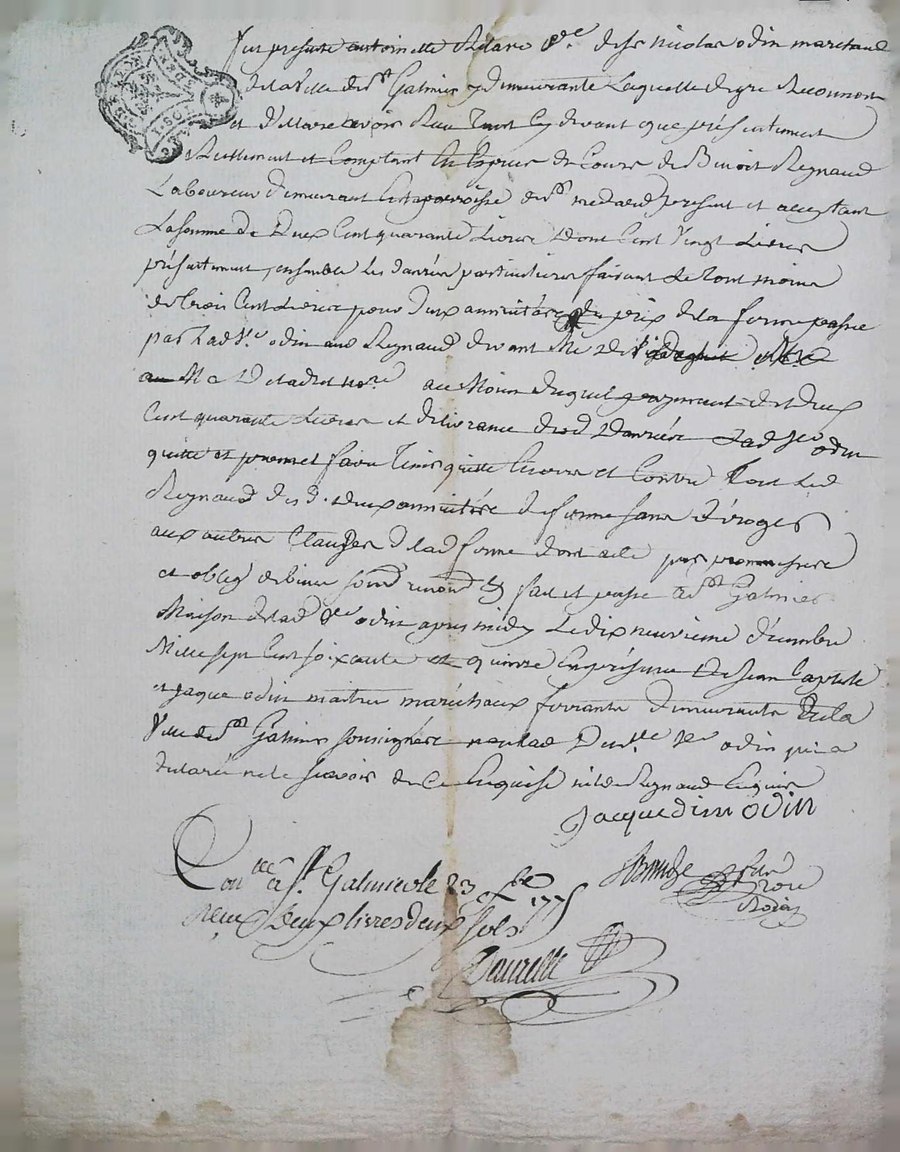 fut presente antoinette ve. de sr nicolas odin marchand
de la ville de st Galmier y demeurante Laquelle de gre Reconnoit
et declare avoir Reçu tant cy devant que présentement
Reellement et Comptant En Espèces de Cours de Benoit Reynaud
Laboureur demeurant En la parroisse de st medard present et acceptant
La somme de Deux Cent quarante Livres Dont Cent vingt Livres
présentement, ensemble les danrées particulieres faisant Le tout moins
de trois Cent Livres pour deux annuitées du prix de la ferme passée
par Lad. ve odin aud Reynaud devant Me
au Moien duquel payement desd deux
Cent quarante Livres et delivrance desd Danrées Lad ve odin
quitte et promet faire tenir quitte Envers et Contre tous Led
Reynaud desd. deux annuitées de ferme sans déroger
aux autres Clauses de lad ferme dont acte par promesses
et oblig de biens soum renon fait et passé a st Galmier
Maison de lad ve odin apres midy Le dix neuvieme décembre
Mille sept Cent soixante et quinze En présence de Jean Baptiste
et jaque odin maitres maréchaux ferrants demeurants En la
Ville de st Galmier soussignés non Lad ve odin qui a
declaré ne le sçavoir de ce Enquise ni led Reynaud Enquis
Jacque odin
odin
Conlle a st. Galmier le 23 xbre 1775
Reçu Deux livres deux sols